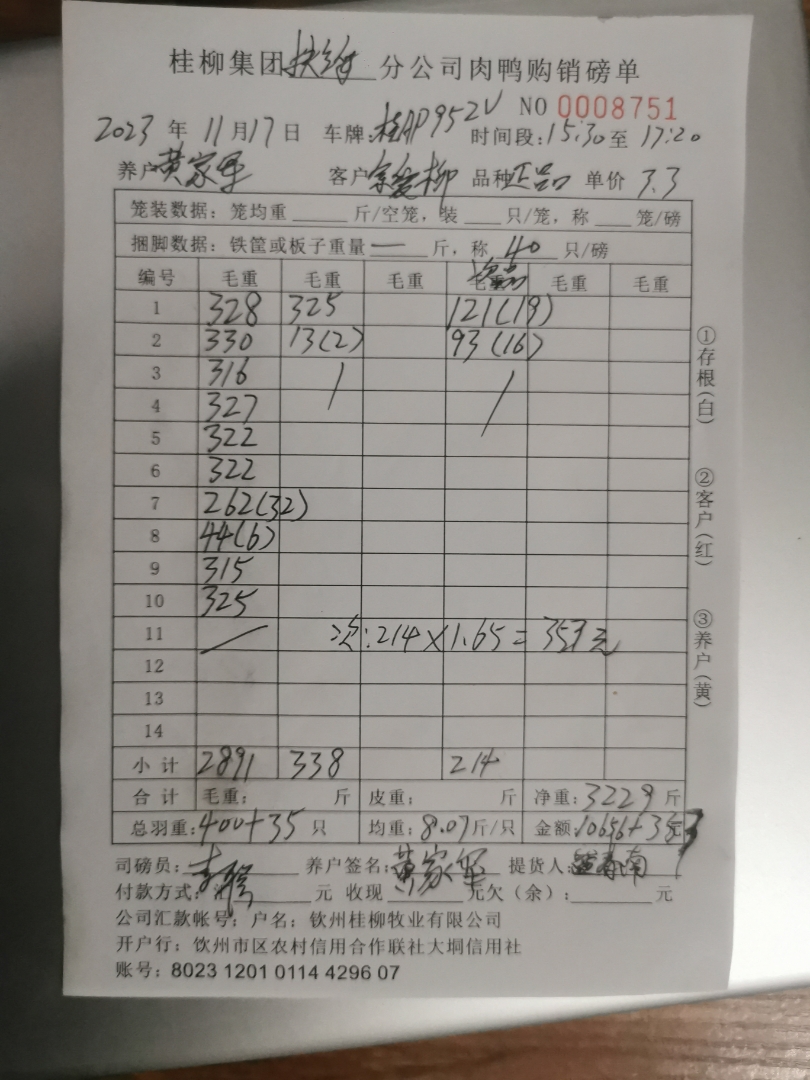 桂柳集团 分公司肉鸭购销磅单
NO 0008751
2023 年 11月17日 车牌:桂AP952U 时间段:15:30至 17:20
养户 黄家军 客户 柳 品种 正品 单价 3.3
笼装数据:笼均重 斤/空笼,装 只/笼,称 笼/磅
捆脚数据:铁筐或板子重量 一 斤,称 40 只/磅
编号 毛重 毛重 毛重 次品 毛重 毛重
1 328 325 121(19)
2 330 13(2) 93(16)
3 316 / /
4 327
5 322
6 322
7 262(32)
8 44(6)
9 315
10 325
11 / 次:214×1.65=353元
12
13
14
小计 2891 338 214
合计 毛重: 斤 皮重: 斤 净重:3229 斤
总羽重:400+35 只 均重:8.07斤/只 金额:10656+353
司磅员: 养户签名:黄家军 提货人: 南
付款方式: 元 收现 元欠(余): 元
公司汇款帐号:户名:钦州桂柳牧业有限公司
开户行:钦州市区农村信用合作联社大垌信用社
账号:8023 1201 0114 4296 07
①存根(白)
②客户(红)
③养户(黄)